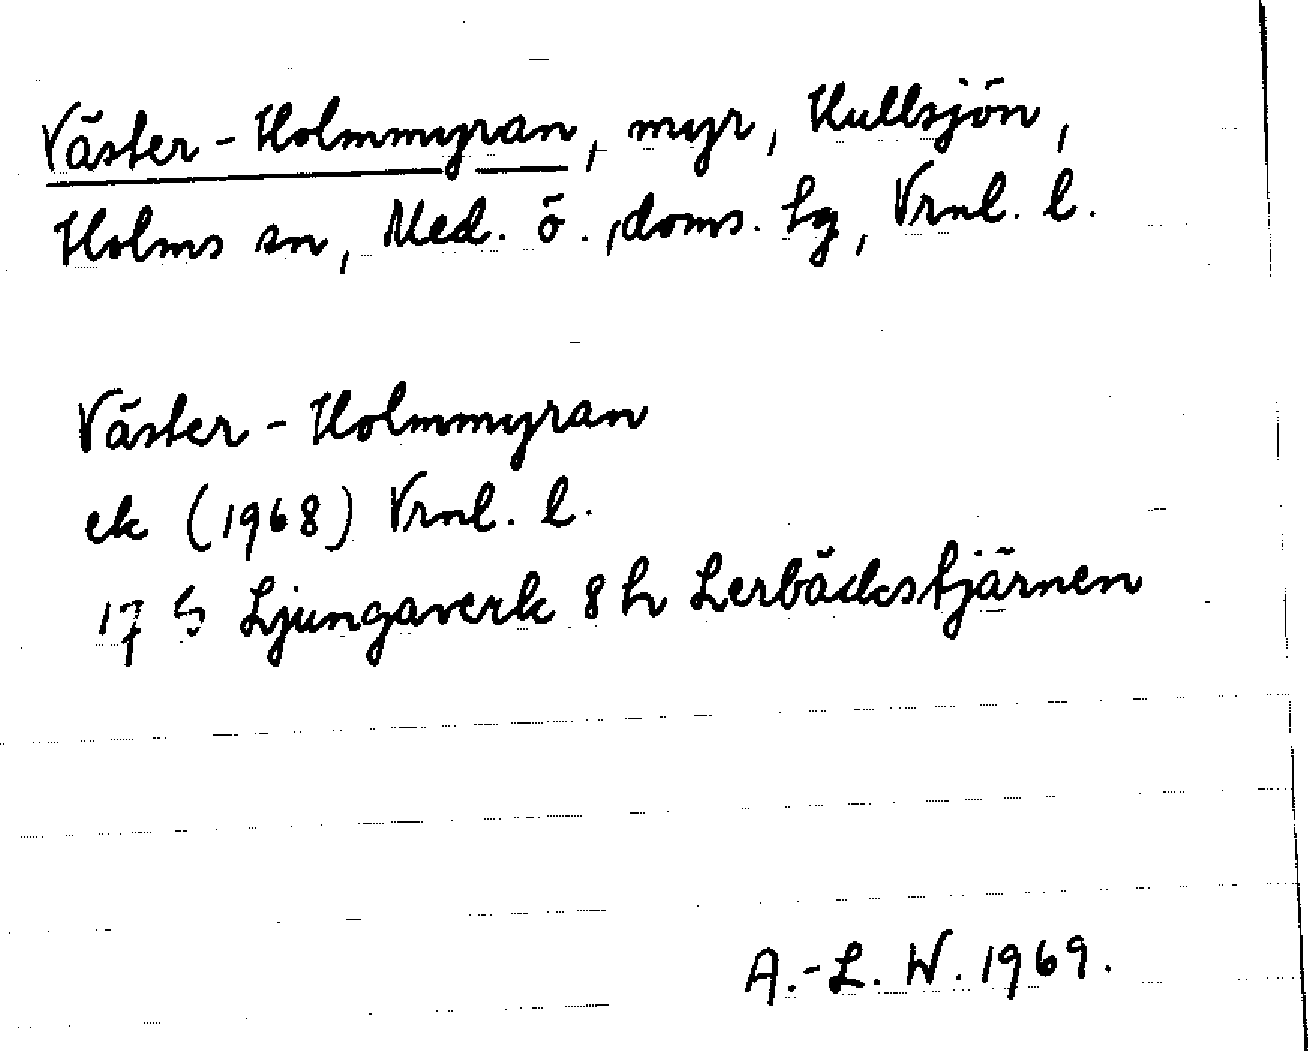 Väster-Holmmyran, myr, Hullsjön,
Holms sn, Med. ö., doms. hg, Vrnl. l.
Väster-Holmmyran
ek (1968) Vrnl. l.
17 G Ljungaverk 8 h Lerbäckstjärnen
A.-L. W. 1969.